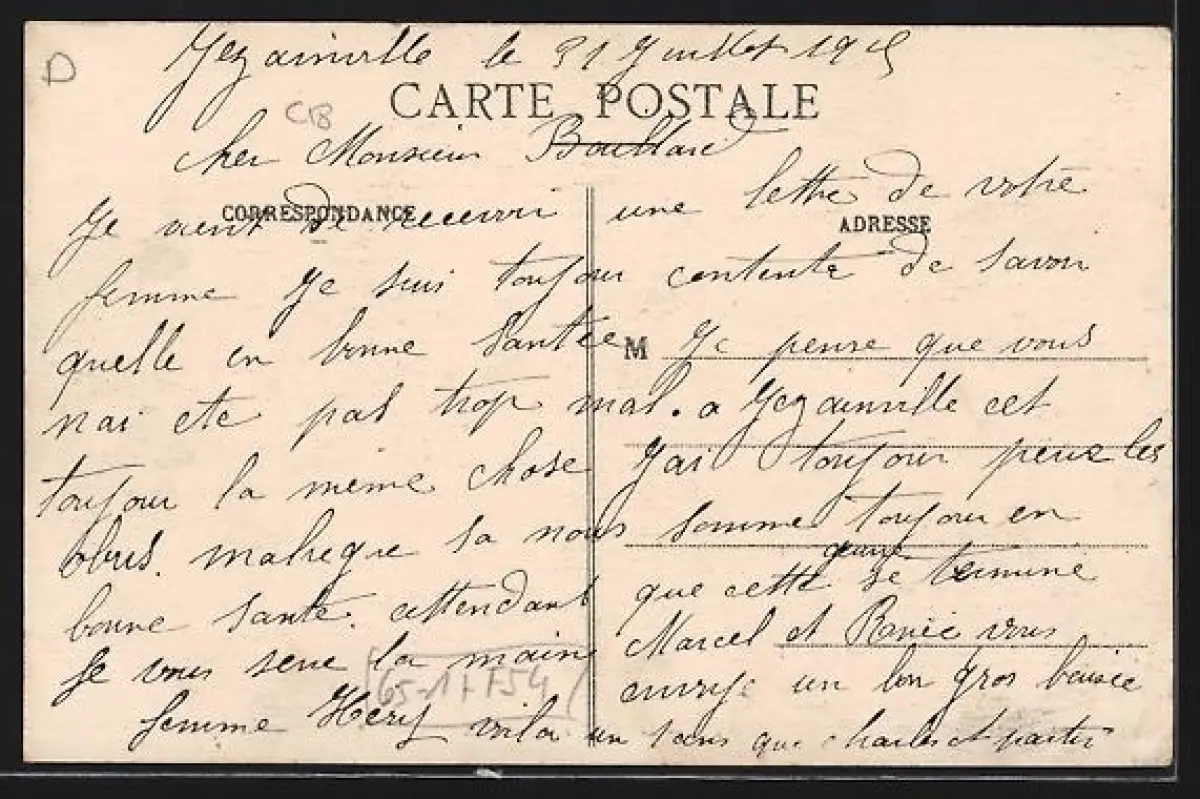 Jezainville le 31 Juillet 1915
D
CARTE POSTALE
CB
cher Monsieur Boullard
CORRESPONDANCE
ADRESSE
Je vient de recevoir une lettre de votre
femme Je suis toujour contente de savoir
quelle en bonne Santée M Je pense que vous
nai ete pas trop mal. a Jezainville cet
toujour la même chose Jai toujour peur les
obus. malregre sa nous somme toujour en
bonne Sante. attendant que cette guerre se termine
Je vous sere la main Marcel et Renée vous
envoye un bon gros baisée
femme Hery voila un 1 ans que charles et partir
65-17754